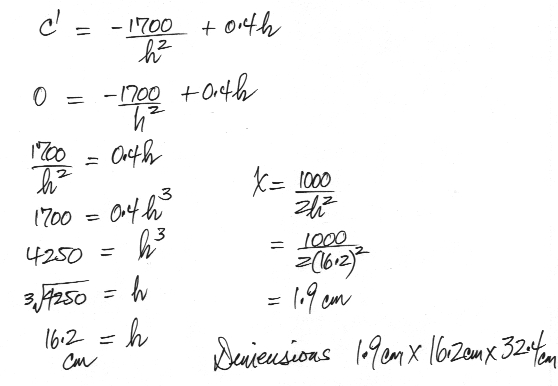 C' = -1700/h² + 0.4h
0 = -1700/h² + 0.4h
1700/h² = 0.4h
1700 = 0.4h³
4250 = h³
3√4250 = h
16.2 cm = h
X = 1000/2h²
= 1000/2(16.2)²
= 1.9 cm
Dimensions 1.9cm X 16.2cm X 32.4cm